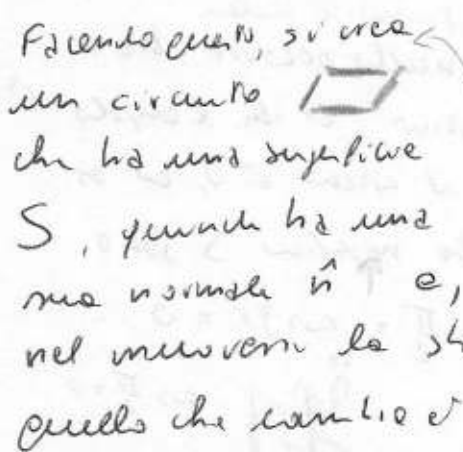 Facendo questo, si crea
un circuito
che ha una superficie
S, quindi ha una
sua normale n̂ e,
nel muoversi la sb
quello che cambia è